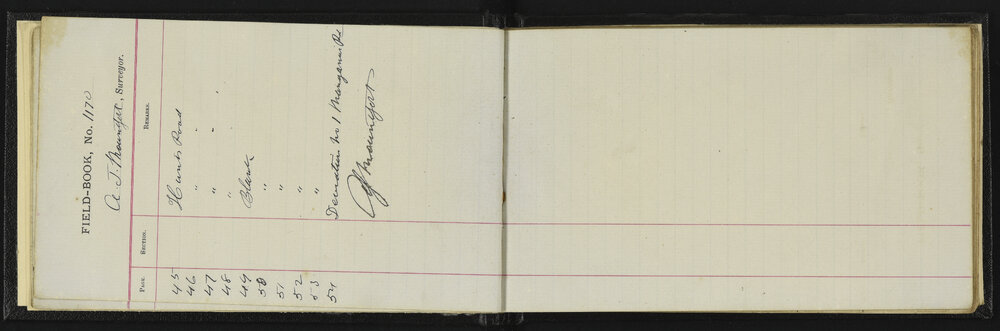 FIELD-BOOK, No. 1170
A. J. Mountfort, Surveyor.
PAGE. SECTION. REMARKS.
45 Hunts Road
46 " "
47 " "
48 "
49 Blank
50 "
51 "
52 "
53 "
54 Deviation No 1 Mangamu Rd
AJMountfort